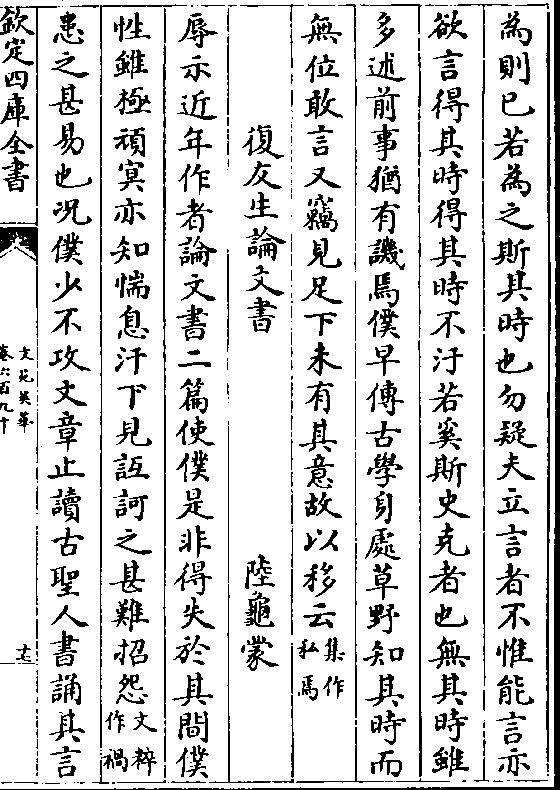 為則已若為之斯其時也勿疑夫立言者不惟能言亦
欲言得其時得其時不汙若奚斯史克者也無其時雖
多述前事猶有譏焉僕早傳古學身處草野知其時而
無位敢言又竊見足下未有其意故以移云集作私焉
復友生論文書　陸龜蒙
辱示近年作者論文書二篇使僕是非得失於其間僕
性雖極頑冥亦知惴息汗下見詆訶之甚難招怨文粹作禍
患之甚易也况僕少不攻文章止讀古聖人書誦其言
欽定四庫全書
文苑英華
卷六百九十
十七